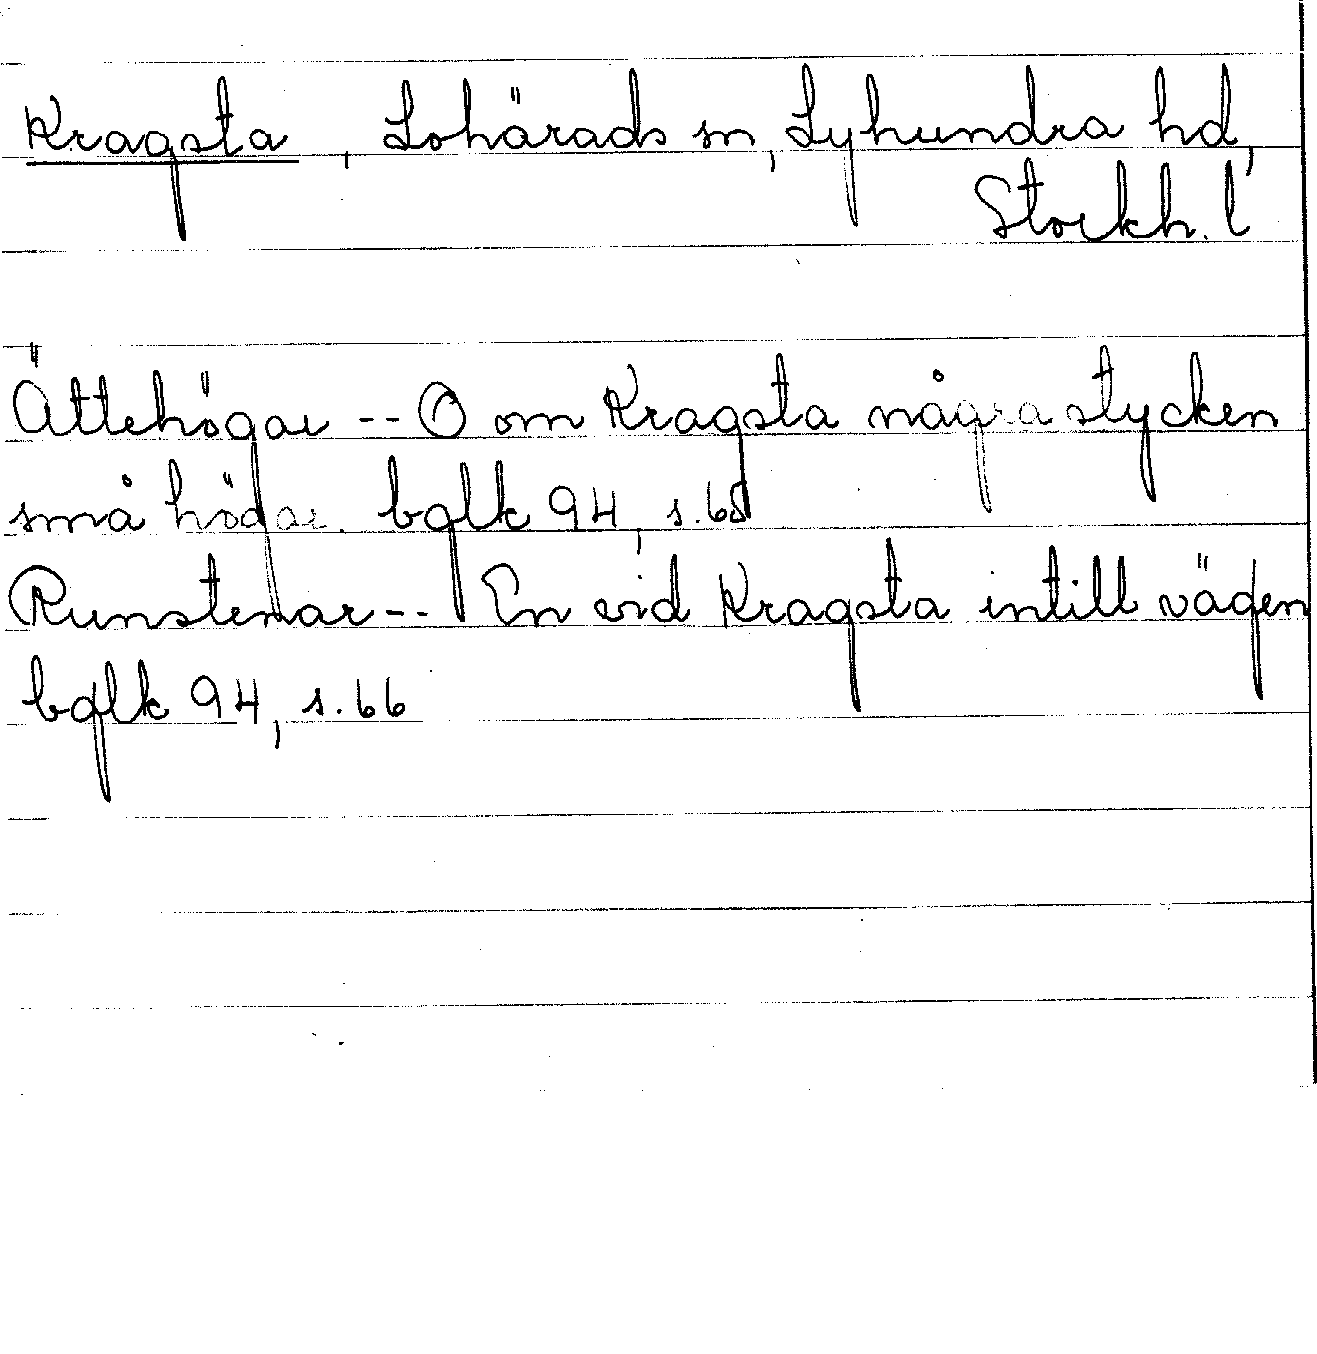 Kragsta, Lohärads sn, Lyhundra hd,
Stockh. l
Ättehögar -- O om Kragsta några stycken
små högar. bglk 94, s. 65
Runstenar -- En vid Kragsta intill vägen
bglk 94, s. 66